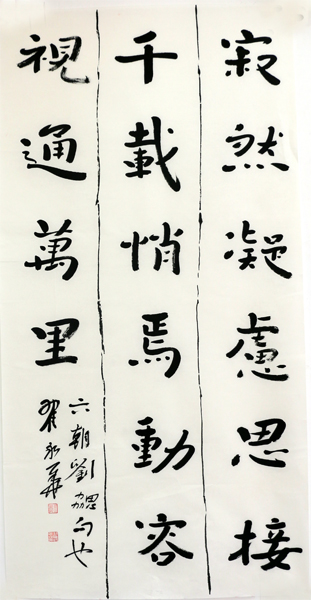 寂然凝慮思接
千載悄焉動容
視通萬里
六朝劉勰句也
翟永華